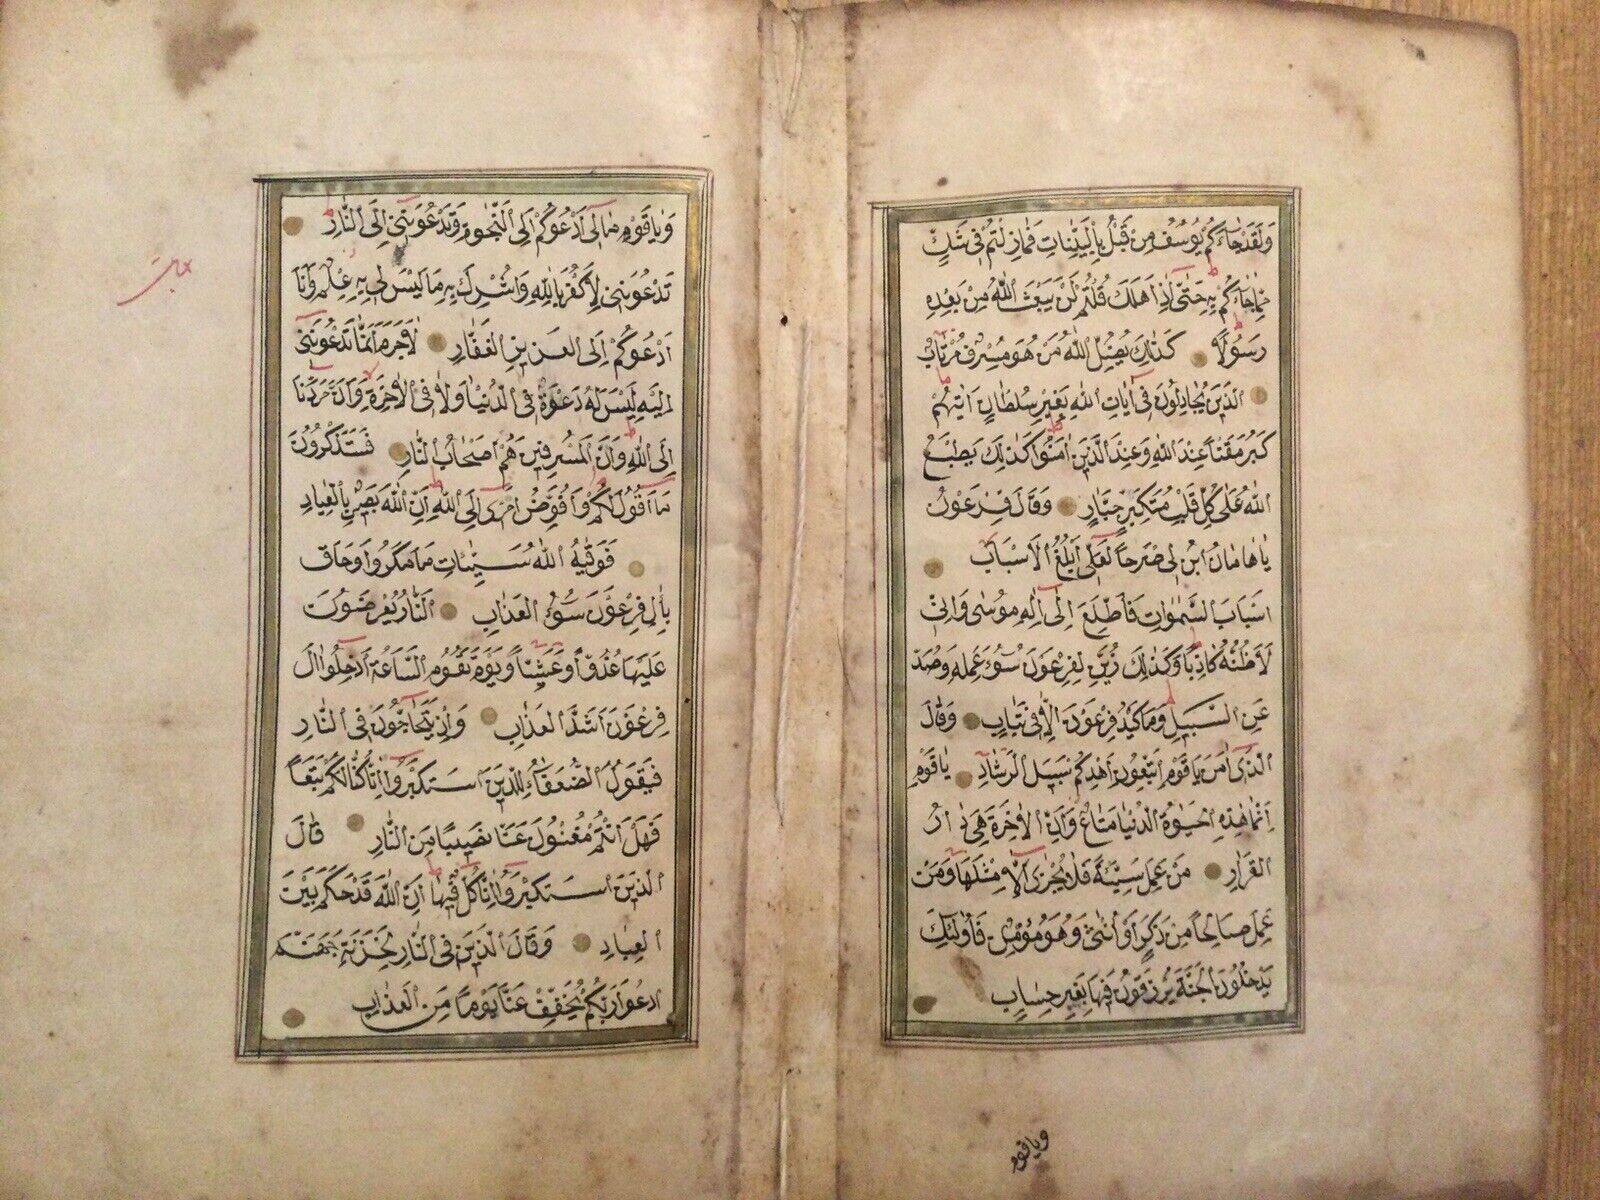 وَلَقَدْ جَاءَكُمْ يُوسُفُ مِنْ قَبْلُ بِالْبَيِّنَاتِ فَمَازِلْتُمْ فِى شَكٍّ
مِمَّا جَاءَكُمْ بِهِ حَتَّى اِذَا هَلَكَ قُلْتُمْ لَنْ يَبْعَثَ اللّٰهُ مِنْ بَعْدِهِ
رَسُولًا كَذٰلِكَ يُضِلُّ اللّٰهُ مَنْ هُوَ مُسْرِفٌ مُرْتَابٌ
اَلَّذِينَ يُجَادِلُونَ فِى اٰيَاتِ اللّٰهِ بِغَيْرِ سُلْطَانٍ اَتٰيهُمْ
كَبُرَ مَقْتًا عِنْدَ اللّٰهِ وَعِنْدَ الَّذِينَ اٰمَنُوا كَذٰلِكَ يَطْبَعُ
اللّٰهُ عَلٰى كُلِّ قَلْبِ مُتَكَبِّرٍ جَبَّارٍ وَقَالَ فِرْعَوْنُ
يَاهَامَانُ ابْنِ لِى صَرْحًا لَعَلِّى اَبْلُغُ الْاَسْبَابَ
اَسْبَابَ السَّمٰوَاتِ فَاَطَّلِعَ اِلٰى اِلٰهِ مُوسٰى وَاِنِّى
لَاَظُنُّهُ كَاذِبًا وَكَذٰلِكَ زُيِّنَ لِفِرْعَوْنَ سُوءُ عَمَلِهِ وَصُدَّ
عَنِ السَّبِيلِ وَمَاكَيْدُ فِرْعَوْنَ اِلَّا فِى تَبَابٍ وَقَالَ
الَّذِى اٰمَنَ يَاقَوْمِ اتَّبِعُونِ اَهْدِكُمْ سَبِيلَ الرَّشَادِ يَاقَوْمِ
اِنَّمَا هٰذِهِ الْحَيٰوةُ الدُّنْيَا مَتَاعٌ وَاِنَّ الْاٰخِرَةَ هِىَ دَارُ
الْقَرَارِ مَنْ عَمِلَ سَيِّئَةً فَلَا يُجْزٰى اِلَّا مِثْلَهَا وَمَنْ
عَمِلَ صَالِحًا مِنْ ذَكَرٍ اَوْ اُنْثٰى وَهُوَ مُؤْمِنٌ فَاُولٰئِكَ
يَدْخُلُونَ الْجَنَّةَ يُرْزَقُونَ فِيهَا بِغَيْرِ حِسَابٍ
وياقوم
وَيَاقَوْمِ مَالِى اَدْعُوكُمْ اِلَى النَّجٰوةِ وَتَدْعُونَنِى اِلَى النَّارِ
تَدْعُونَنِى لِاَكْفُرَ بِاللّٰهِ وَاُشْرِكَ بِهِ مَا لَيْسَ لِى بِهِ عِلْمٌ وَاَنَا
اَدْعُوكُمْ اِلَى الْعَزِيزِ الْغَفَّارِ لَاجَرَمَ اَنَّمَا تَدْعُونَنِى
اِلَيْهِ لَيْسَ لَهُ دَعْوَةٌ فِى الدُّنْيَا وَلَا فِى الْاٰخِرَةِ وَاَنَّ مَرَدَّنَا
اِلَى اللّٰهِ وَاَنَّ الْمُسْرِفِينَ هُمْ اَصْحَابُ النَّارِ فَسَتَذْكُرُونَ
مَا اَقُولُ لَكُمْ وَاُفَوِّضُ اَمْرِى اِلَى اللّٰهِ اِنَّ اللّٰهَ بَصِيرٌ بِالْعِبَادِ
فَوَقٰيهُ اللّٰهُ سَيِّئَاتِ مَا مَكَرُوا وَحَاقَ
بِاٰلِ فِرْعَوْنَ سُوءُ الْعَذَابِ اَلنَّارُ يُعْرَضُونَ
عَلَيْهَا غُدُوًّا وَعَشِيًّا وَيَوْمَ تَقُومُ السَّاعَةُ اَدْخِلُوا اٰلَ
فِرْعَوْنَ اَشَدَّ الْعَذَابِ وَاِذْ يَتَحَاجُّونَ فِى النَّارِ
فَيَقُولُ الضُّعَفَاءُ لِلَّذِينَ اسْتَكْبَرُوا اِنَّا كُنَّا لَكُمْ تَبَعًا
فَهَلْ اَنْتُمْ مُغْنُونَ عَنَّا نَصِيبًا مِنَ النَّارِ قَالَ
الَّذِينَ اسْتَكْبَرُوا اِنَّا كُلٌّ فِيهَا اِنَّ اللّٰهَ قَدْ حَكَمَ بَيْنَ
الْعِبَادِ وَقَالَ الَّذِينَ فِى النَّارِ لِخَزَنَةِ جَهَنَّمَ
ادْعُوا رَبَّكُمْ يُخَفِّفْ عَنَّا يَوْمًا مِنَ الْعَذَابِ